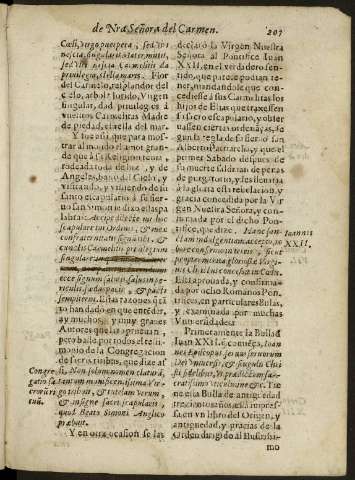 de Nra Señora del Carmen.
207
Cœli, Virgo puerpera, sed viri
nescia, singularis, Mater mitis,
sed viri nescia, Carmelitis da
privilegia, stella maris. Flor
del Carmelo, resplandor del
Cielo, arbol florido, Virgen
singular, dad privilegios à
vuestros Carmelitas Madre
de piedad, estrella del mar.
Y fue assi, que para mos-
trar al mundo el amor gran-
de que à su Religion tenia,
rodeada toda de luz, y de
Angeles, baxò del Cielo, y
visitando, y
santo escapulario à su sier-
vo san Simon le dixo estas pa-
labras: Accipe dilecte mi hoc
scapulare tui Ordinis, & meæ
confraternitatis signum tibi, &
cunctis Carmelitis privilegium
singulare
ecce signum salutis, salus in pe-
riculis, fœdus pacis, & pacti
sempiterni. Estas razones què
to han dado en que entender,
ay muchos, y muy graves
Autores que las prueban,
pero baste por todos el testi-
monio de la Congregacion
de sacros ritus, que dize assi
Non solum nomen clatura,
sed tutelam Verum,
& insigne sacri scapularis,
quod Beato Simoni Anglico
præbuit.
Y en otra ocasion se las
Congre-
gatio sa-
crorũ ri-
tuũ.
declarò la Virgen Nuestra
Señora al Pontifice Iuan
XXII. en el verdadero sen-
tido, que parece podian te-
ner, mandandole que con-
cediesse à sus Carmelitas los
hijos de Elias que traxessen
su sacro escapulario, y obser-
vassen ciertas ordenãças, se-
gun la regla de su siervo san
Alberto Patriarcha, y que el
primer Sabado despues de
su muerte saldrian de penas
de purgatorio, y les llevaria
à la gloria esta revelacion, y
gracia concedida por la Vir
gen Nuestra Señora, y con-
firmada por el dicho Pon-
tifice, que dize: Hanc san-
ctam indulgentiam accepto, ro-
boro, & confirmo in terris, sicut
propter merita gloriosæ Virgi-
nis Christus concessit in Cœlis.
Està aprobada, y confirma-
da por ocho Romanos Pon-
tifices, en particulares Bulas,
y examinada por muchas
Vniversidades.
Primeramente la Bulla de
Iuan XXII. q̃ comiẽça, Ioan-
nes Episcopus servus servorum
Dei Vniversis, & singulis Chri-
sti fidelibus,
&c. Tie
ne esta Bulla de antiguedad
trecientos años, està impres-
sa en vn libro del Origen, y
antiguedad, y gracias de la
Orden dirigido al Illustrissi-
mo
Ioannis
XXII.